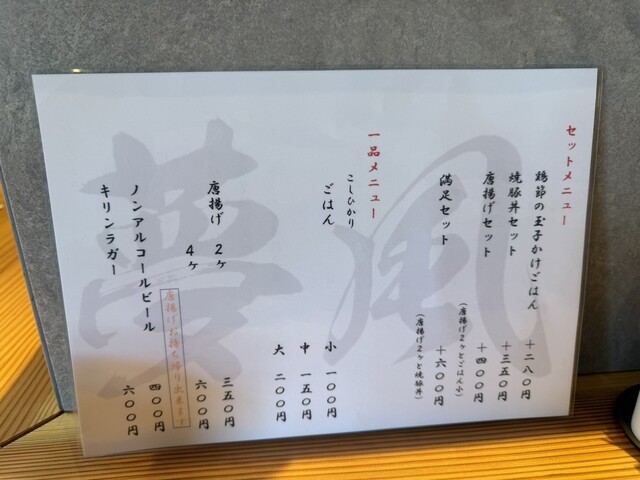 セットメニュー
鶏節の玉子かけごはん ＋二八〇円
焼豚丼セット ＋三五〇円
唐揚げセット ＋四〇〇円
（唐揚げ２ヶとごはん小）
満足セット ＋六〇〇円
（唐揚げ２ヶと焼豚丼）
一品メニュー
こしひかり
ごはん 小 一〇〇円
中 一五〇円
大 二〇〇円
唐揚げ ２ヶ 三五〇円
４ヶ 六〇〇円
唐揚げお持ち帰り出来ます
ノンアルコールビール 四〇〇円
キリンラガー 六〇〇円
夢風